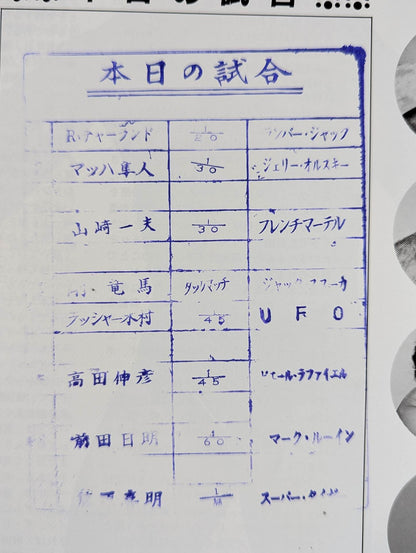 本日の試合
R.チャーランド 1/20 ランバー・ジャック
マッハ隼人 1/30 ジェリー・オルスキー
山崎一夫 1/30 フレンチマーテル
剛・竜馬 タッグマッチ
ラッシャー木村 1/45 UFO
高田伸彦 1/45 ・ラファイエル
前田日明 1/60 マーク・ルーイン
明 1/ スーパー・